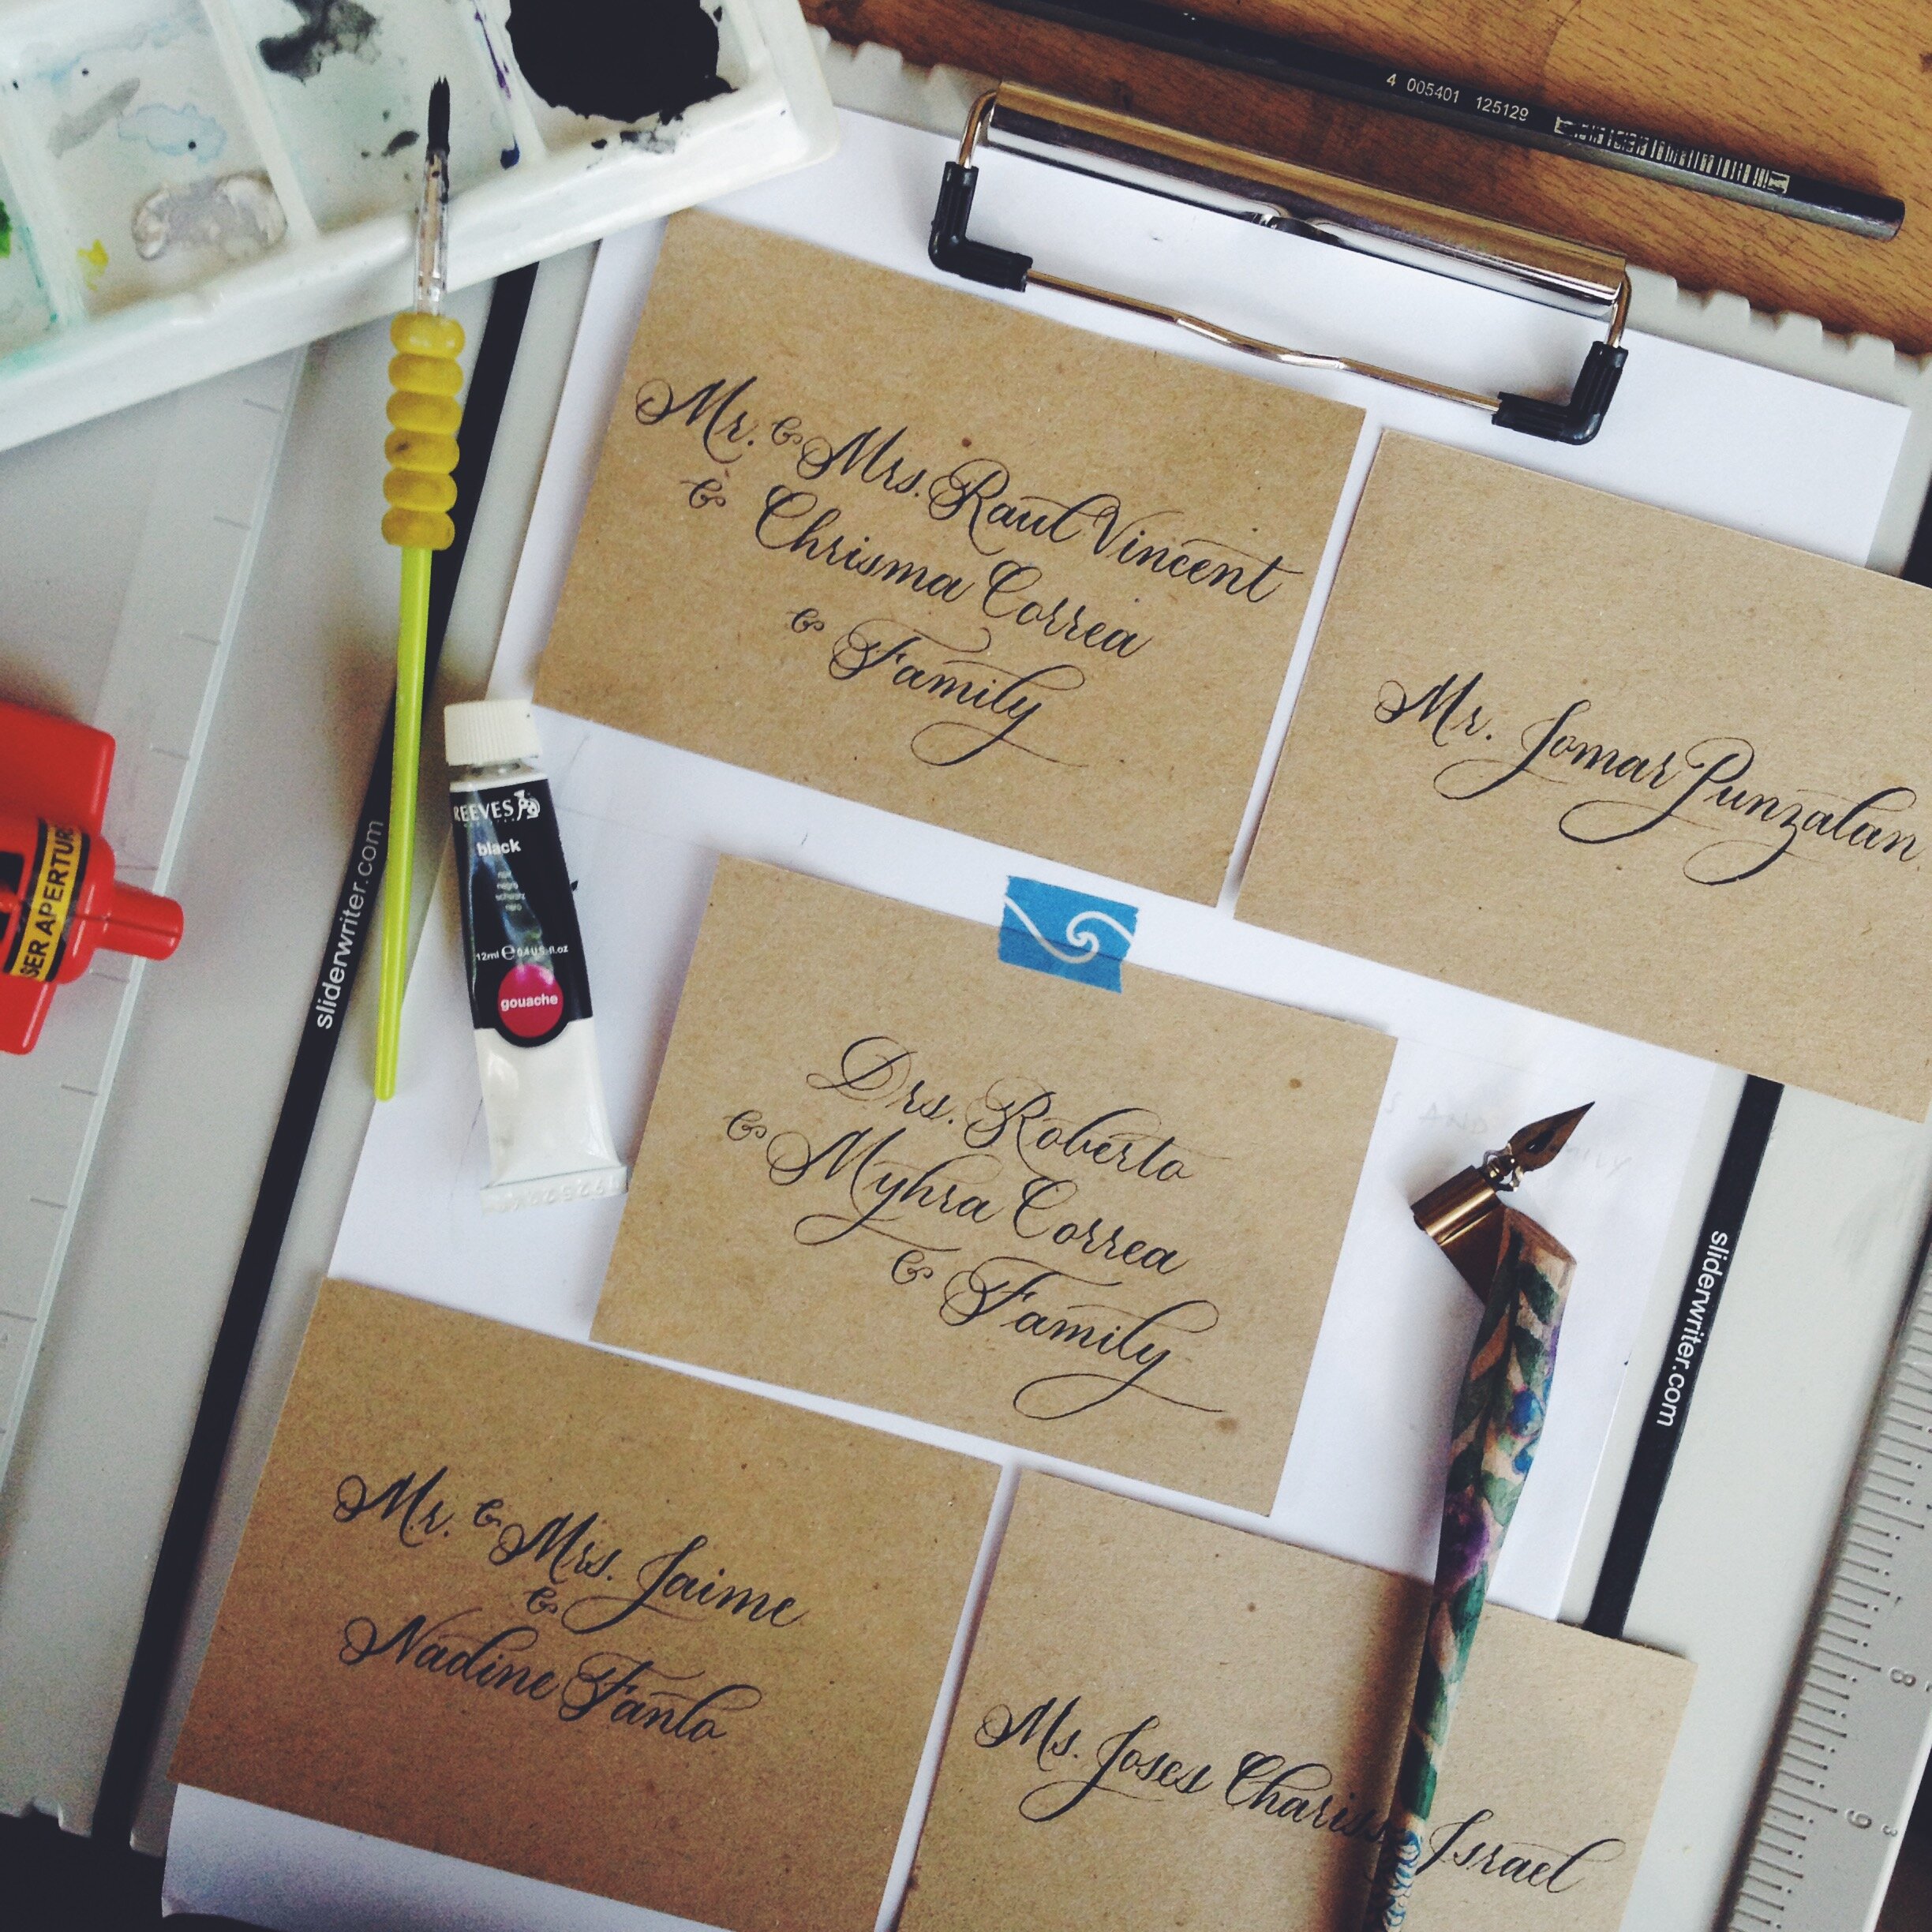 4 005401 125129
Mr. & Mrs. Raul Vincent
& Chrisma Correa
& Family
Mr. Jomar Punzalan
SER APERTUR
sliderwriter.com
REEVES
black
noir
negro
schwarz
nero
12ml e 0.4 US.fl.oz
gouache
Drs. Roberto
& Myhra Correa
& Family
sliderwriter.com
Mr. & Mrs. Jaime
&
Nadine Fanlo
Ms. Joses Israel
8
9
3